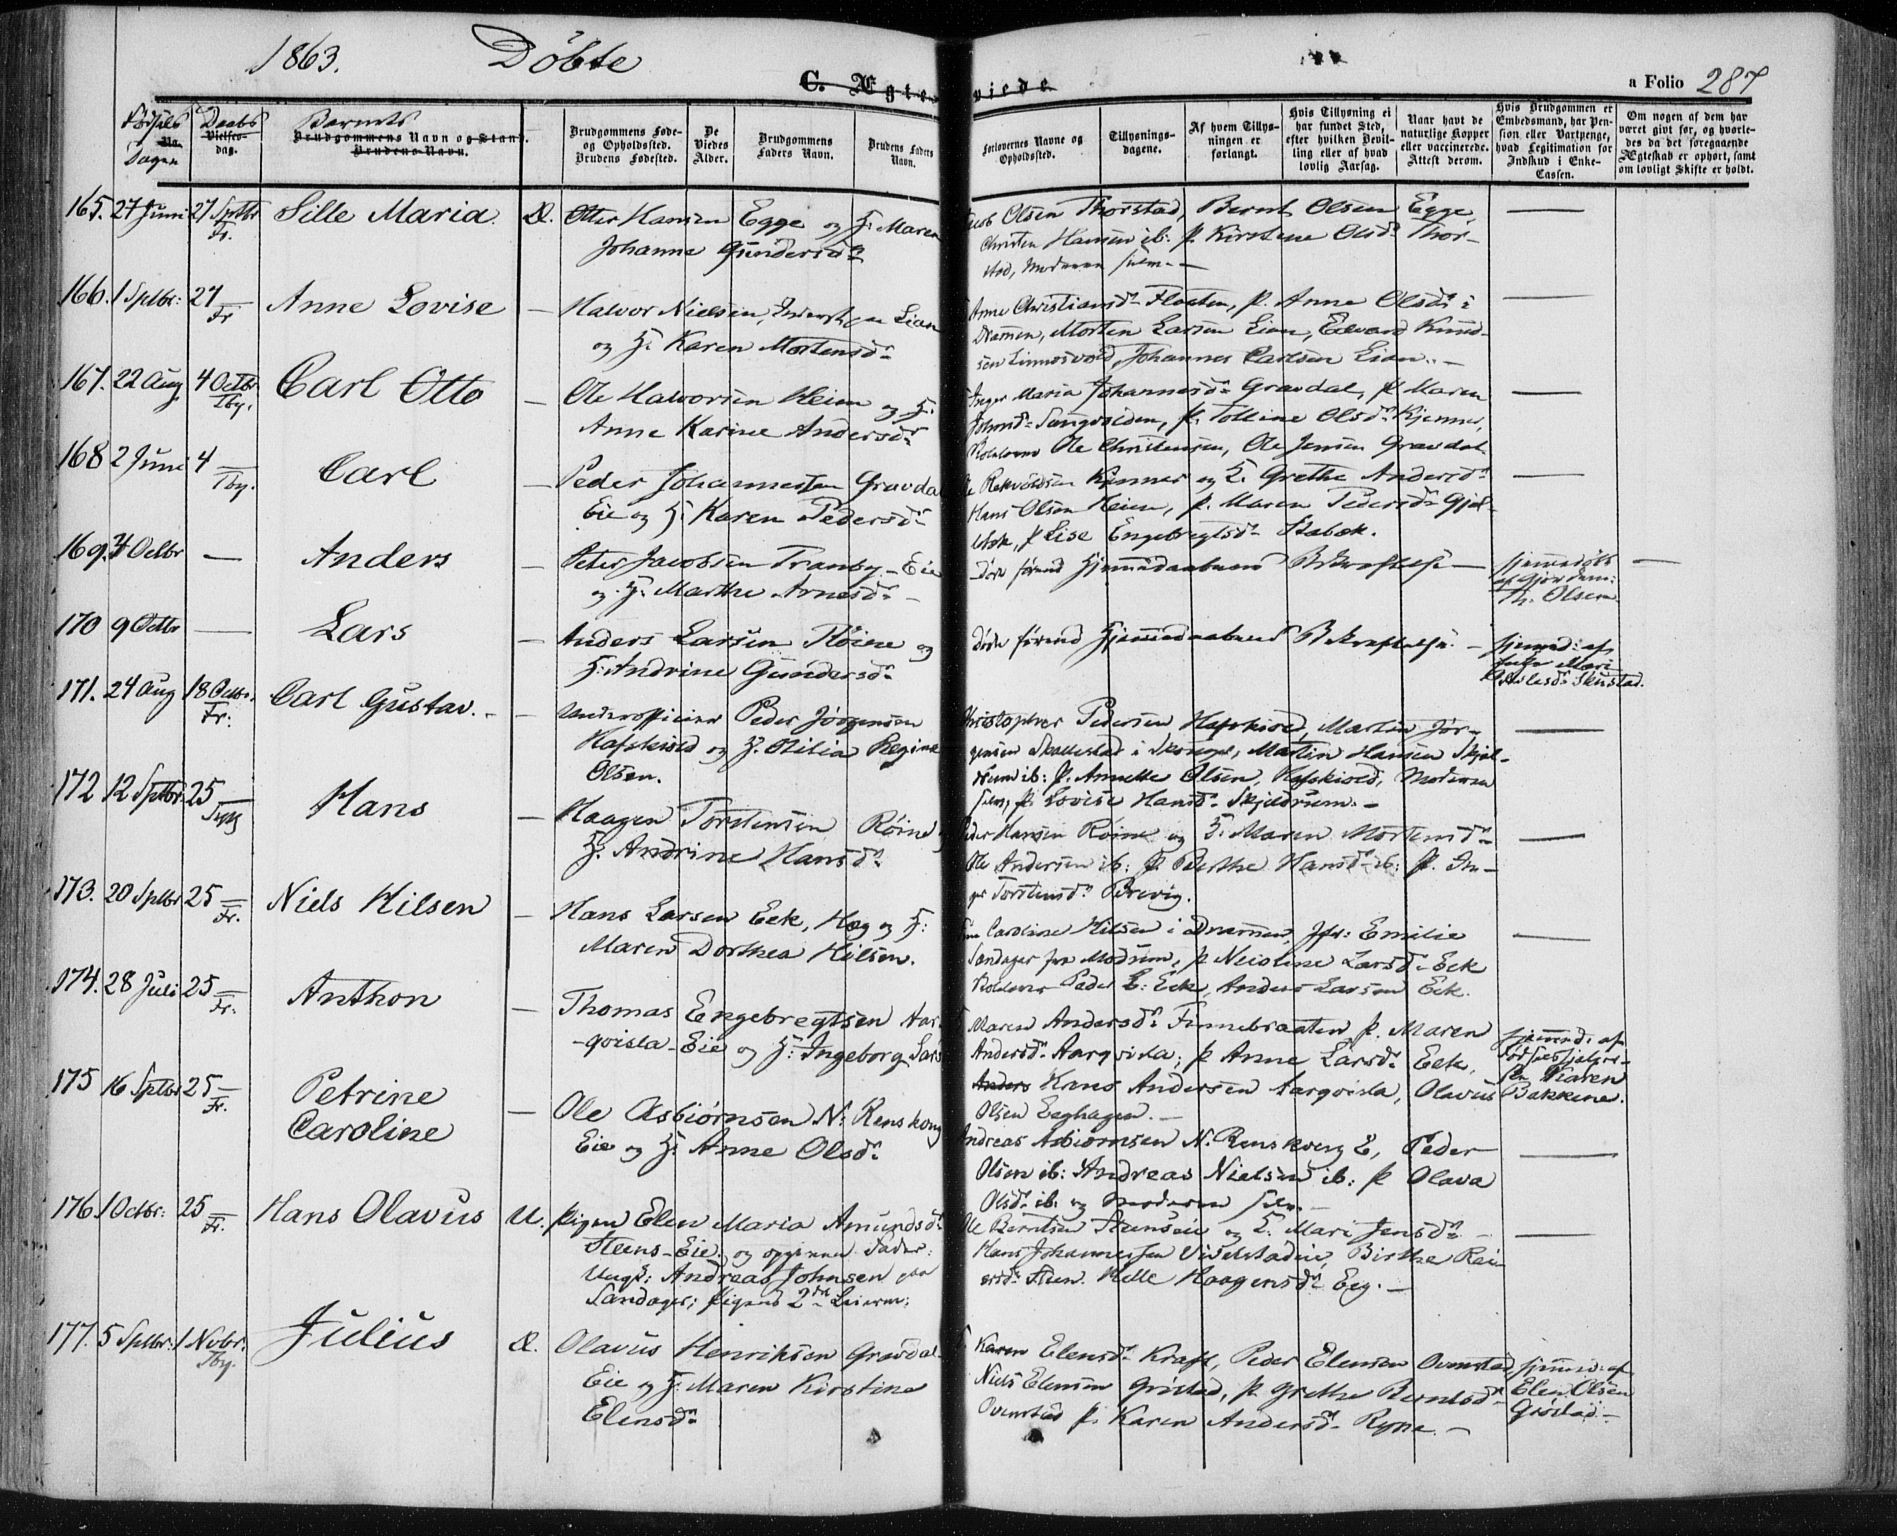 1863. Döbte
C. Ægteviede
a Folio 287
Fødsels Dagen
Daabs
Vielses-dag.
Barnets
Brudgommens Navn og Stand.
Brudens Navn.
Brudgommens Føde- og Opholdssted.
Brudens Fødested.
De Viedes Alder.
Brudgommens Faders Navn.
Brudens Faders Navn.
Forlovernes Navne og Opholdssted.
Tillysnings-dagene.
Af hvem Tillysningen er forlangt.
Hvis Tillysning ei har fundet Sted, efter hvilken Bevilling eller af hvad lovlig Aarsag.
Naar havt de naturlige Kopper eller vaccinerede. Attest derom.
Hvis Brudgommen er Embedsmand, har Pension eller Vartpenge, hvad Legitimation for Indskud i Enke-Cassen.
Om nogen af dem har været givt før, og hvorledes da det foregaaende Ægteskab er ophørt, samt om lovligt Skifte er holdt.
165. 27 Juni 27 Septbr Fr. Sille Maria Æ. Otter Hansen Egge og H: Maren
Johanne Gundersdr
Olsen Thorstad, Bernt Olsen Egge,
Christen Hansen ib: p. Kirstene Olsdr Thorstad, Moderen selv. —
166. 1 Sptbr: 27 Fr Anne Lovise — Halvor Nielsen, Lian
og H: Karen Mortensdr
Anne Christiansdr Floeten, p. Anne Olsdr i
Drammen, Morten Larsen Lian, Edvard Knudsen Linnosvold, Johannes Carlsen Lian. —
167. 22 Aug 4 Octbr. Tby. Carl Otto — Ole Halvorsen Heien og H:
Anne Karine Andersdr
Inger Maria Johannesdr Gravdal, p. Maren
p. Tolline Olsdr Kjenner,
Ole Christensen, Ole Jensen Gravdal
168 2 Juni 4 Tby. Carl — Peder Johannessen Gravdal
Eie og H: Karen Pedersdr
Kjenner og H. Grethe Andersdr
Hans Olsen Heien, p. Maren Pedersdr Gjelsteb, p Lise Engebregtsdr Stabæk.
169. 4 Octbr — Anders — Peter Jacobsen Tranby-Eie
og H: Marthe Arnesdr —
Døde førend Hjemmedaabens Bekræftelse — hjemmedöbt
af Gjordem:
Th. Olsen
170 9 Octbr — Lars — Anders Larsen Flöien og
H: Andrine Gundersdr
Døde førend Hjemmedaabens Bekræftelse. — hjemmed: af
Mari
Skustad.
171. 24 Aug 18 Octbr. Fr: Carl Gustav. — Underofficier Peder Jørgensen
Hafskiold og H. Otilia Regine
Olsen.
Christopher Pedersen Hafskiold, Martin Jørgensen Skallestad i Skouger, Martin Hansen Skjeldrum ib: p. Annette Olsen, Hafskiold, Moderen
selv, p. Lovise Hansdr Skjeldrum. —
172 12 Sptbr 25 Hans — Haagen Torstensen Röine
H. Andrine Hansdr
Peder Hansen Röine og H. Maren Mortensdr
Ole Andersen ib: p Berthe Hansdr ib: p. Inger Torstensdr Brevig.
173. 20 Sptbr 25 Fr. Niels Hilsen — Hans Larsen Eek, Hæg og H:
Maren Dorthea Hilsen.
Caroline Hilsen i Drammen, Jfr: Emilie
Sandager fra Modum, p Nicoline Larsdr Eek
Peder L: Eek, Anders Larsen Eek.
174. 28 Juli 25 Fr. Anthon — Thomas Engebregtsen Aarqvisla-Eie og H: Ingeborg Lars
Maren Andersdr Finnebraaten p. Maren
Andersdr Aarqvisla, p Anne Larsdr Eek,
Anders Hans Andersen Aarqvisla, Olavus
Olsen Eeghagen. —
hjemmd: af
Karen
Bakkene.
175 16 Sptbr 25 Fr. Petrine
Caroline — Ole Asbiørnsen N: Renskoug
Eie og H: Anne Olsdr
Andreas Asbiørnsen N. Renskoug E, Peder
Olsen ib: Andreas Nielsen ib: p Olava
Olsdr ib: og Moderen selv. —
176. 1 Octbr: 25 Fr. Hans Olavus U. Pigen Elen Maria Amundsdr
Steens-Eie: og opgiven Fader:
Ungk: Andreas Johnsen paa
Sandager; Pigens 2det Leierm:
Ole Berntsen Steenseie og H. Mari Jensdr —
Hans Johannessen Birthe Rei-
ersdr Steen. Helle Haagensdr Eeg. —
177. 5 Sptbr: 1 Nvbr. Tby. Julius Æ. Olavus Henriksen Gravdal
Eie og H. Maren Kirstine
Elensdr
Karen Elensdr Kraft, Peder Elensen Ovenstad,
Niels Elensen Gröstad, p. Grethe Berntsdr
Ovenstad p. Karen Andersdr Rygne. —
hjemmed: af
Elen Olsen
Gröstad. —